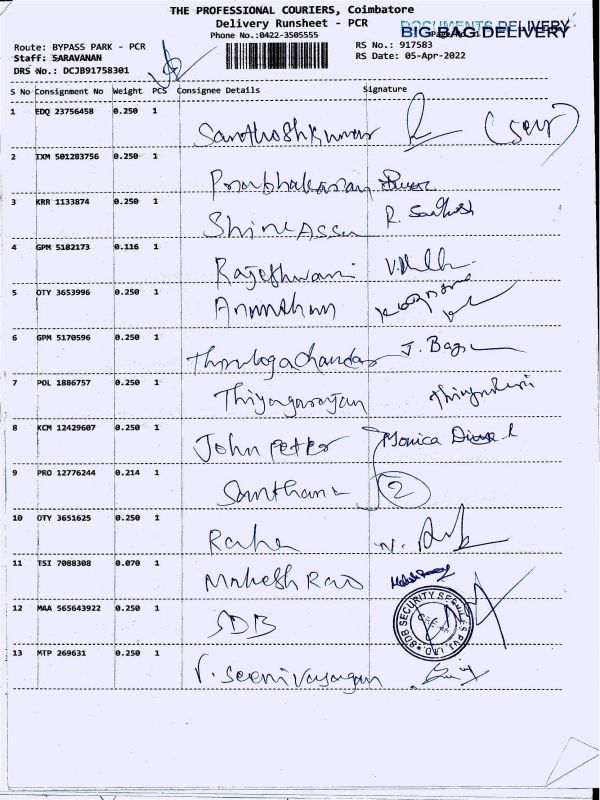 THE PROFESSIONAL COURIERS, Coimbatore
Delivery Runsheet - PCR
Phone No.:0422-3505555
BIG BAG DELIVERY
Route: BYPASS PARK - PCR
Staff: SARAVANAN
DRS No.: DCJB91758301
RS No.: 917583
RS Date: 05-Apr-2022
S No Consignment No Weight PCS Consignee Details Signature
1 EDQ 23756458 0.250 1 Santhosh Kumar
2 IXM 501283756 0.250 1 Prabhakaran
3 KRR 1133874 0.250 1 Shine Assu R. Santhosh
4 GPM 5182173 0.116 1 Rajeshwari
5 OTY 3653996 0.250 1
6 GPM 5170596 0.250 1 J. Bagu
7 POL 1886757 0.250 1 Thiyagarajan
8 KCM 12429607 0.250 1 John Petter Monica
9 PRO 12776244 0.214 1 Santhana 2
10 OTY 3651625 0.250 1
11 TSI 7088308 0.070 1 Mahesh Rao
12 MAA 565643922 0.250 1 SDB SDB SECURITY SERVICES PVT. LTD.
13 MTP 269631 0.250 1 V. Seenivasagan